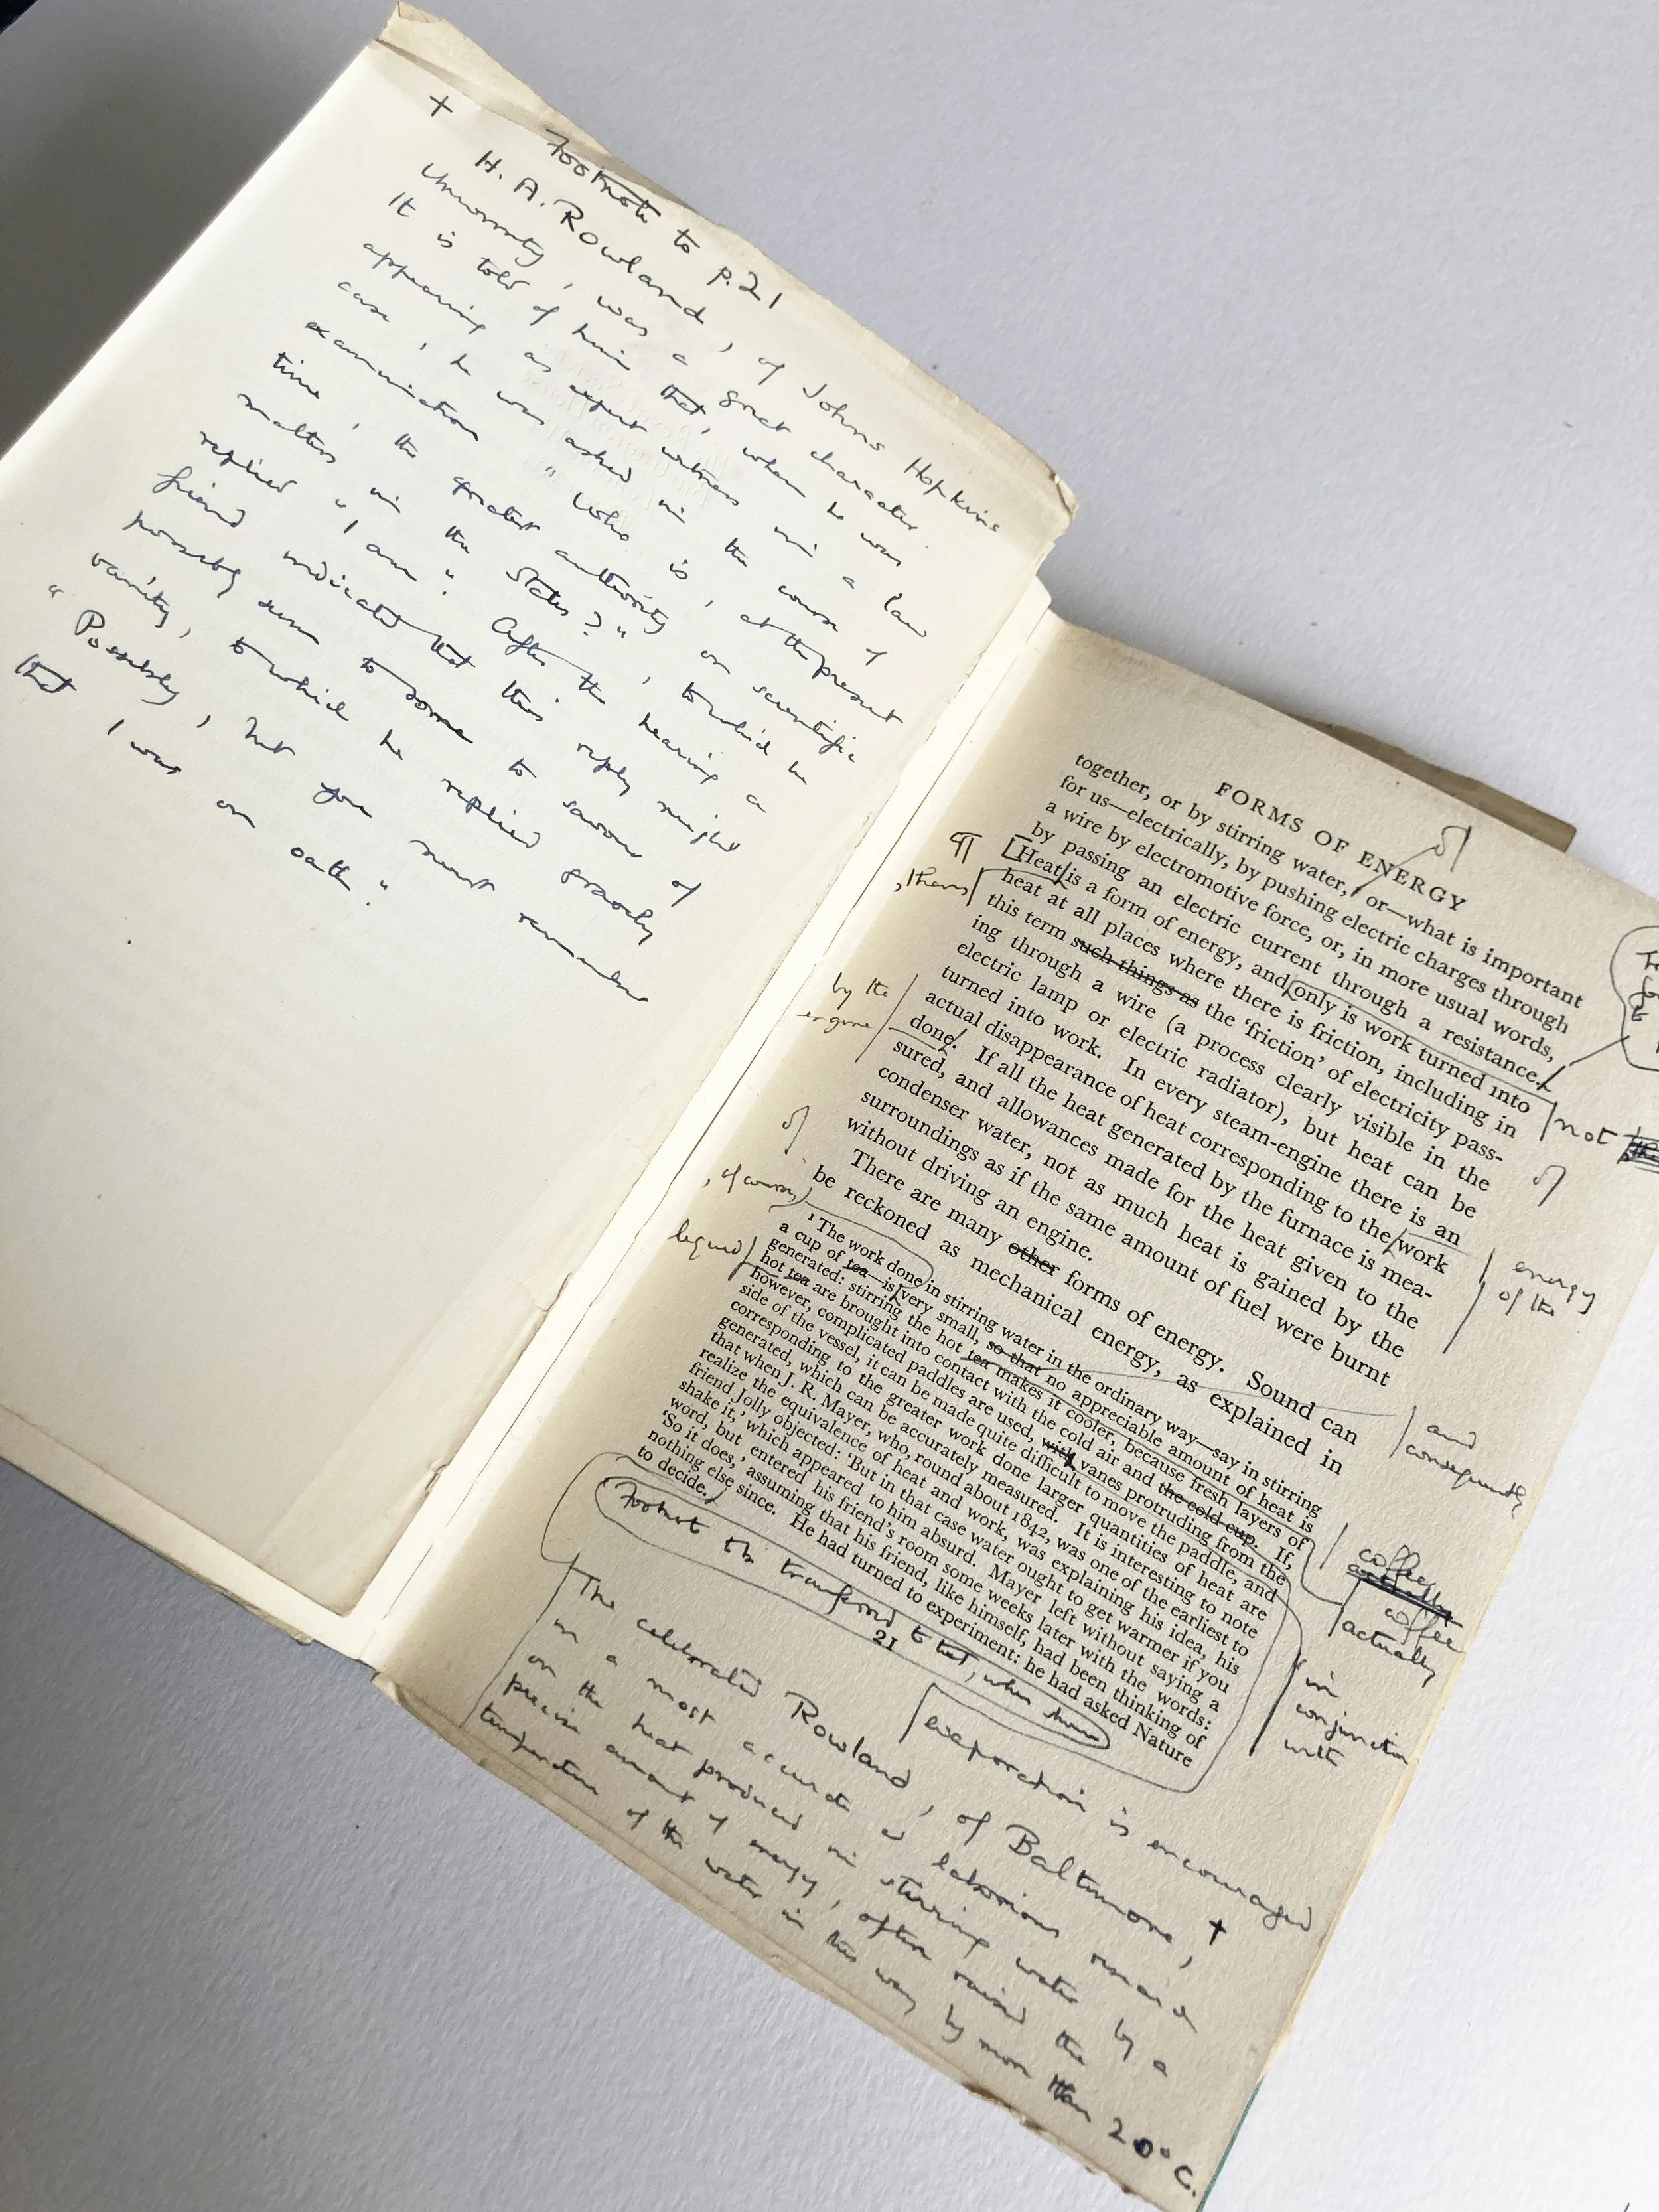 + Footnote to p. 21
H. A. Rowland, of Johns Hopkins
University, was a great character.
It is told of him that, when he was
appearing as expert witness in a law
case, he was asked in the course of
examination "Who is, at the present
time, the greatest authority on scientific
matters in the States?", to which he
replied "I am". After the hearing a
friend indicated that this reply might
possibly seem to some to savour of
vanity, to which he replied gravely
"Possibly, but you must remember
that I was on oath".
FORMS OF ENERGY
together, or by stirring water,¹ or—what is important
for us—electrically, by pushing electric charges through
a wire by electromotive force, or, in more usual words,
by passing an electric current through a resistance.
Heat is a form of energy, and only is work turned into
heat at all places where there is friction, including in
this term such things as the 'friction' of electricity pass-
ing through a wire (a process clearly visible in the
electric lamp or electric radiator), but heat can be
turned into work. In every steam-engine there is an
actual disappearance of heat corresponding to the work
done. If all the heat generated by the furnace is mea-
sured, and allowances made for the heat given to the
condenser water, not as much heat is gained by the
surroundings as if the same amount of fuel were burnt
without driving an engine.
There are many other forms of energy. Sound can
be reckoned as mechanical energy, as explained in
¹ The work done in stirring water in the ordinary way—say in stirring
a cup of tea—is very small, so that no appreciable amount of heat is
generated: stirring the hot tea makes it cooler, because fresh layers of
hot tea are brought into contact with the cold air and the cold cup. If,
however, complicated paddles are used, with vanes protruding from the
side of the vessel, it can be made quite difficult to move the paddle, and
corresponding to the greater work done larger quantities of heat are
generated, which can be accurately measured. It is interesting to note
that when J. R. Mayer, who, round about 1842, was one of the earliest to
realize the equivalence of heat and work, was explaining his idea, his
friend Jolly objected: 'But in that case water ought to get warmer if you
shake it,' which appeared to him absurd. Mayer left without saying a
word, but entered his friend's room some weeks later with the words:
'So it does,' assuming that his friend, like himself, had been thinking of
nothing else since. He had turned to experiment: he had asked Nature
to decide.
21
by the
engine
, of course,
liquid
not
energy
of the
and
consequently
coffee
coffee
actually
in
conjunction
with
evaporation is encouraged
The celebrated Rowland, of Baltimore, †
in a most accurate & laborious research
on the heat produced in stirring water by a
precise amount of energy, often raised the
temperature of the water in this way by more than 20° C.